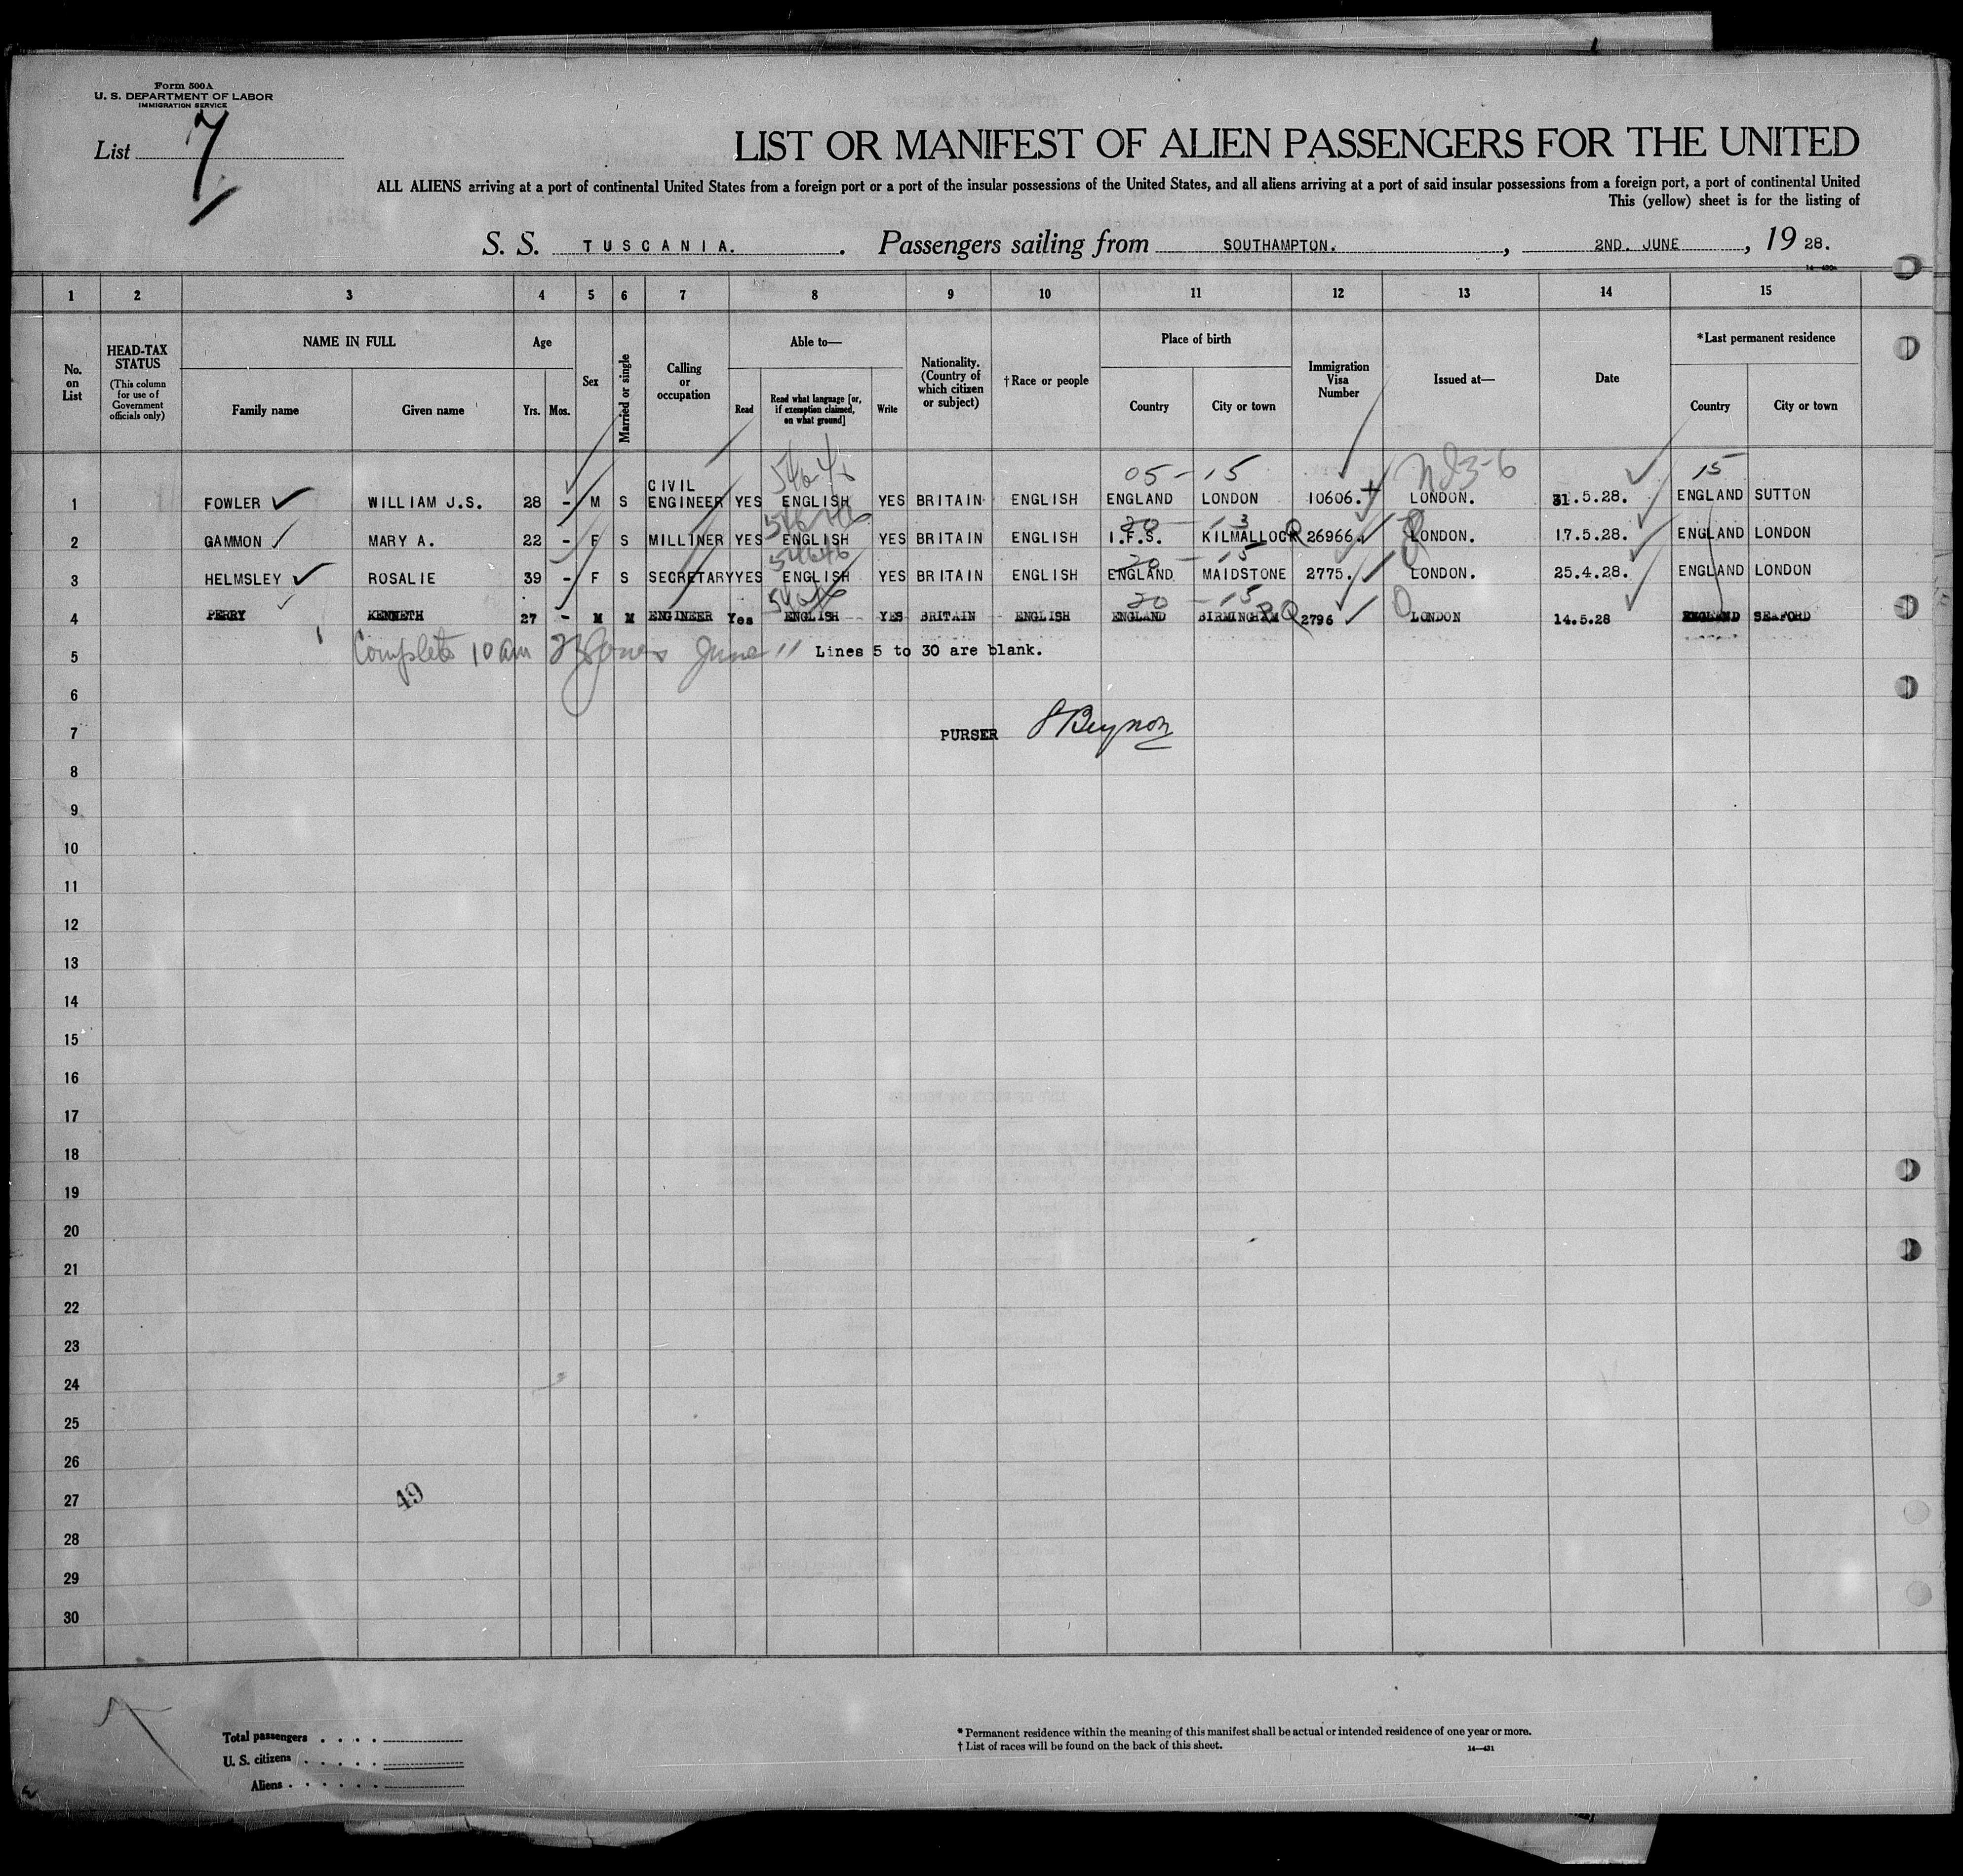 Form 500A
U. S. DEPARTMENT OF LABOR
IMMIGRATION SERVICE
List 7
LIST OR MANIFEST OF ALIEN PASSENGERS FOR THE UNITED
ALL ALIENS arriving at a port of continental United States from a foreign port or a port of the insular possessions of the United States, and all aliens arriving at a port of said insular possessions from a foreign port, a port of continental United
This (yellow) sheet is for the listing of
S. S. TUSCANIA. Passengers sailing from SOUTHAMPTON. , 2ND. JUNE , 19 28.
1 2 3 4 5 6 7 8 9 10 11 12 13 14 15
No. on List
HEAD-TAX STATUS
(This column for use of Government officials only)
NAME IN FULL
Family name Given name
Age
Yrs. Mos.
Sex
Married or single
Calling or occupation
Able to—
Read
Read what language [or, if exemption claimed, on what ground]
Write
Nationality. (Country of which citizen or subject)
†Race or people
Place of birth
Country City or town
Immigration Visa Number
Issued at—
Date
*Last permanent residence
Country City or town
05 - 15 15
1 FOWLER WILLIAM J.S. 28 - M S CIVIL ENGINEER YES ENGLISH YES BRITAIN ENGLISH ENGLAND LONDON 10606. LONDON. 31.5.28. ENGLAND SUTTON
2 GAMMON MARY A. 22 - F S MILLINER YES ENGLISH YES BRITAIN ENGLISH I.F.S. KILMALLOCK 26966. LONDON. 17.5.28. ENGLAND LONDON
3 HELMSLEY ROSALIE 39 - F S SECRETARY YES ENGLISH YES BRITAIN ENGLISH ENGLAND MAIDSTONE 2775. LONDON. 25.4.28. ENGLAND LONDON
4 PERRY KENNETH 27 - M M ENGINEER Yes ENGLISH YES BRITAIN ENGLISH ENGLAND BIRMINGHAM 2796 LONDON 14.5.28 ENGLAND SEAFORD
5 Complete 10 am June 11 Lines 5 to 30 are blank.
6
7 PURSER Beynon
8
9
10
11
12
13
14
15
16
17
18
19
20
21
22
23
24
25
26
27 49
28
29
30
Total passengers
U. S. citizens
Aliens
* Permanent residence within the meaning of this manifest shall be actual or intended residence of one year or more.
† List of races will be found on the back of this sheet.
14—431